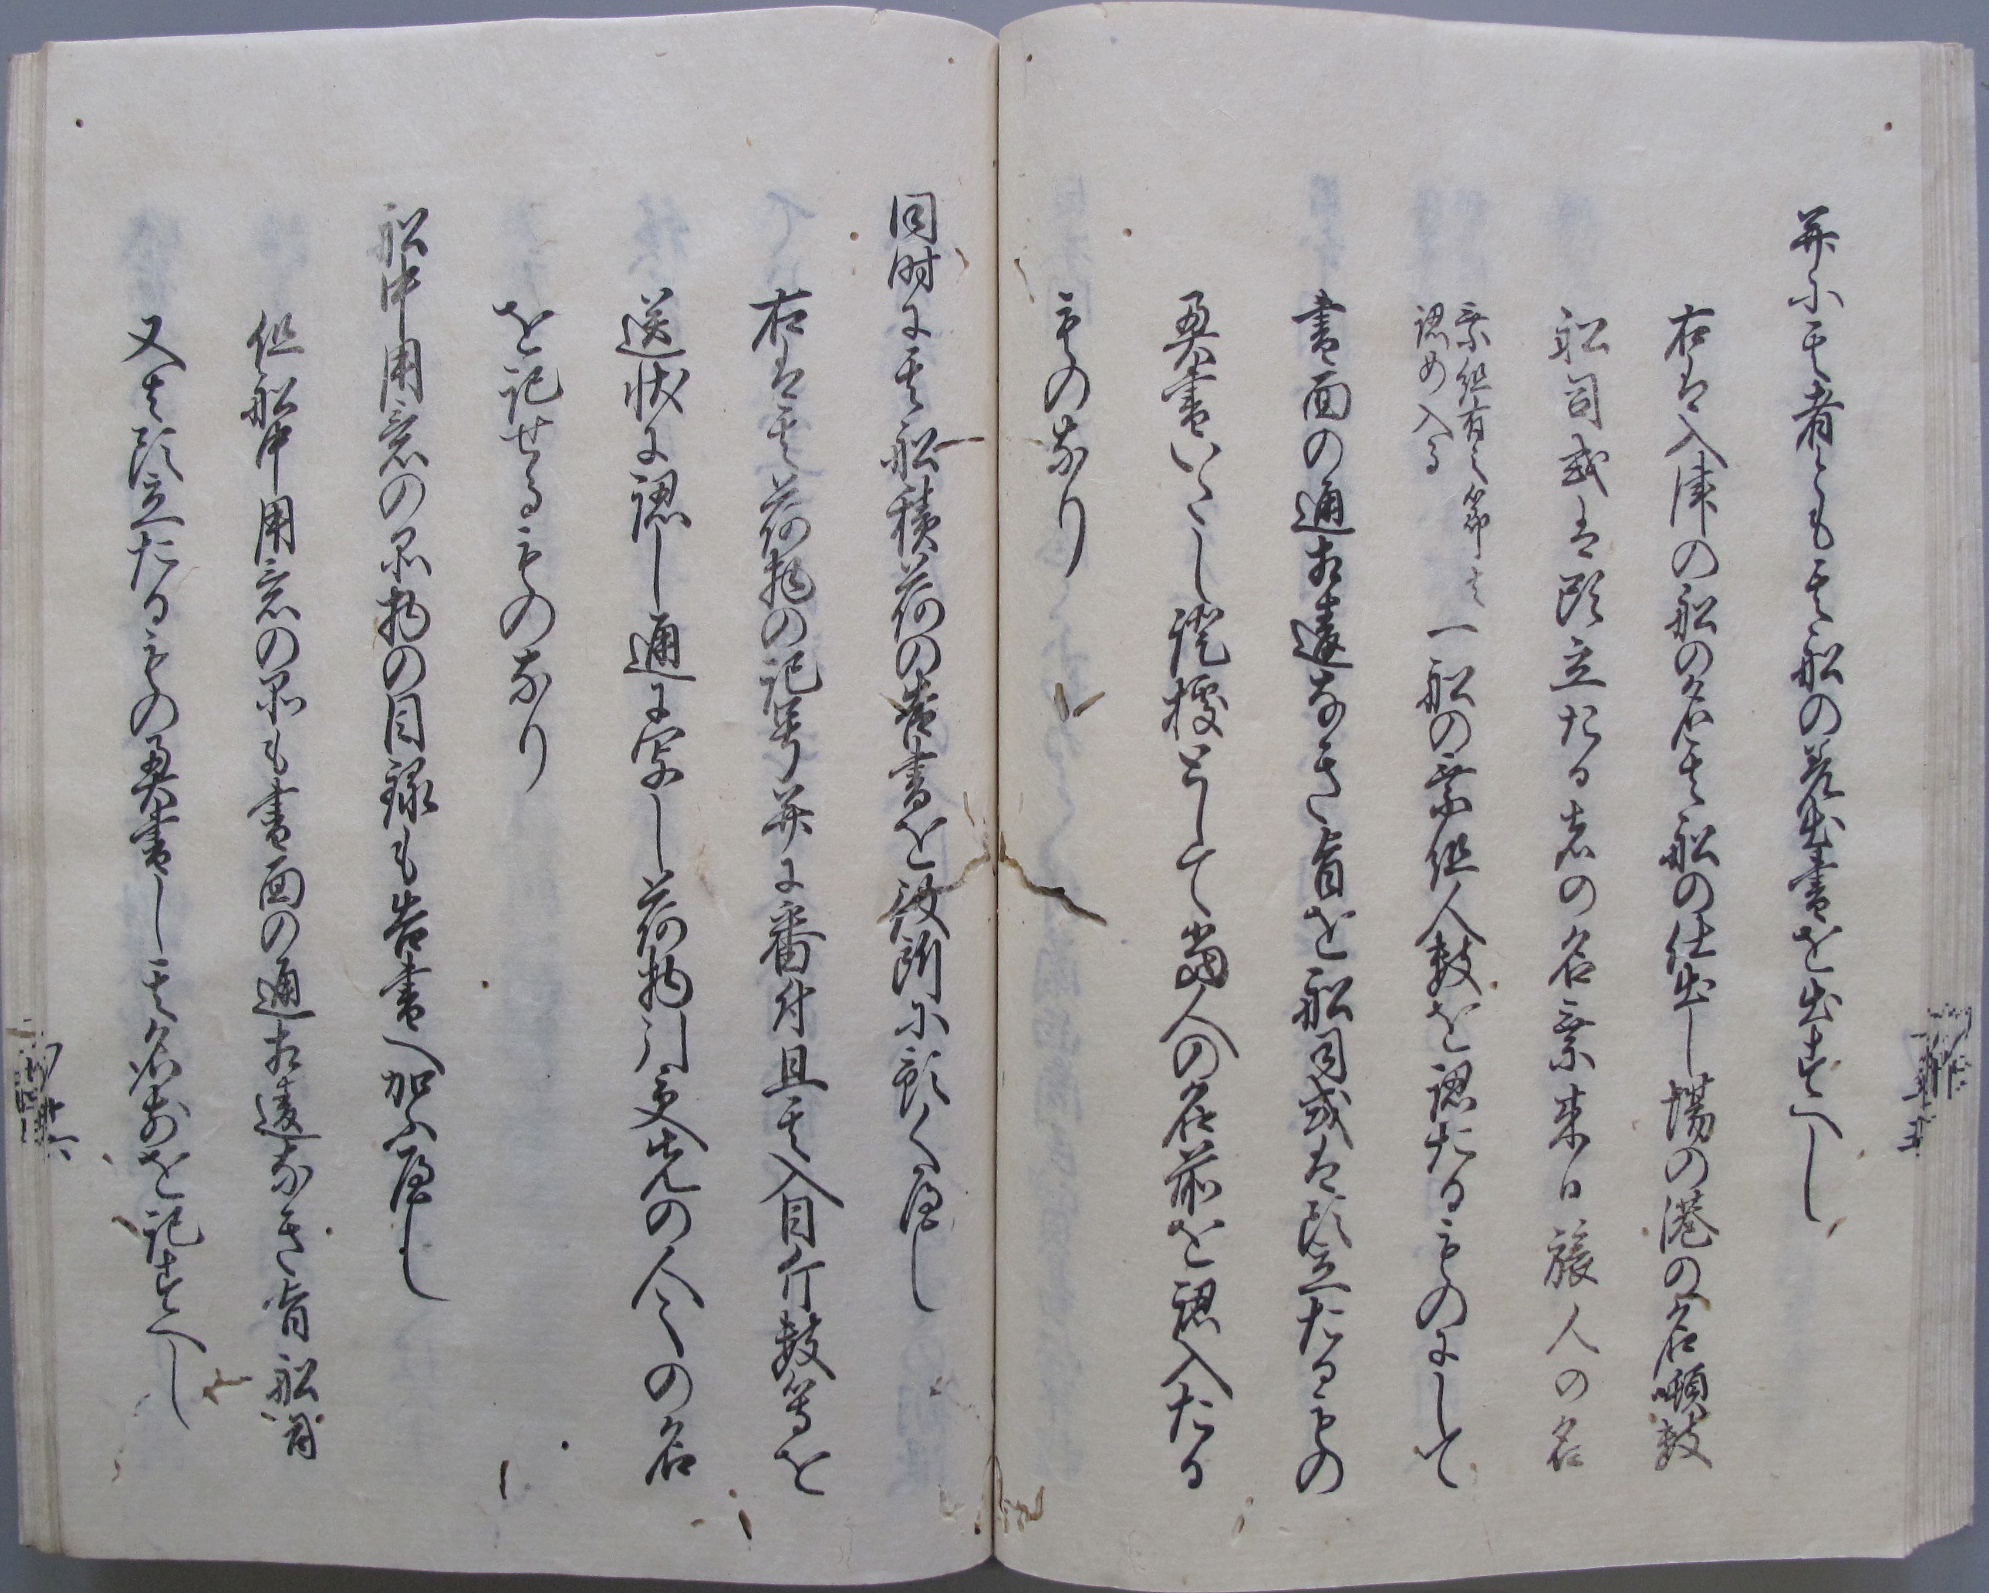 并に其者とも其船の差出書を出すへし
右は入津の船の名其船の仕出し場の港の名噸数
船司或は頭立たる者の名乗来る旅人の名
乗組有之節は
認め入る
一船の乗組人数を認たるものにして
書面の通相違なき旨を船司或は頭立たるもの
奥書いたし證據として當人の名前を認入たる
ものなり
同時に其船積荷の告書を役所に預くへし
右は其荷物の記号并に番付且其入目斤数等を
送状に認し通に写し荷物引受先の人々の名
を記せるものなり
船中用意の品物の目録も告書へ加ふへし
但船中用意の品も書面の通相違なき旨船司
又は頭立たるもの奥書し其名前を記すへし